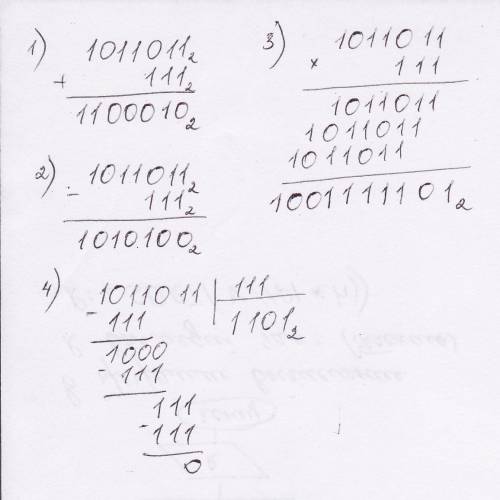 1) 1011011₂
+ 111₂
1100010₂
2) 1011011₂
- 111₂
1010100₂
3) 1011011
× 111
1011011
1011011
1011011
1001111101₂
4) 1011011 | 111
- 111 1101₂
1000
- 111
111
- 111
0